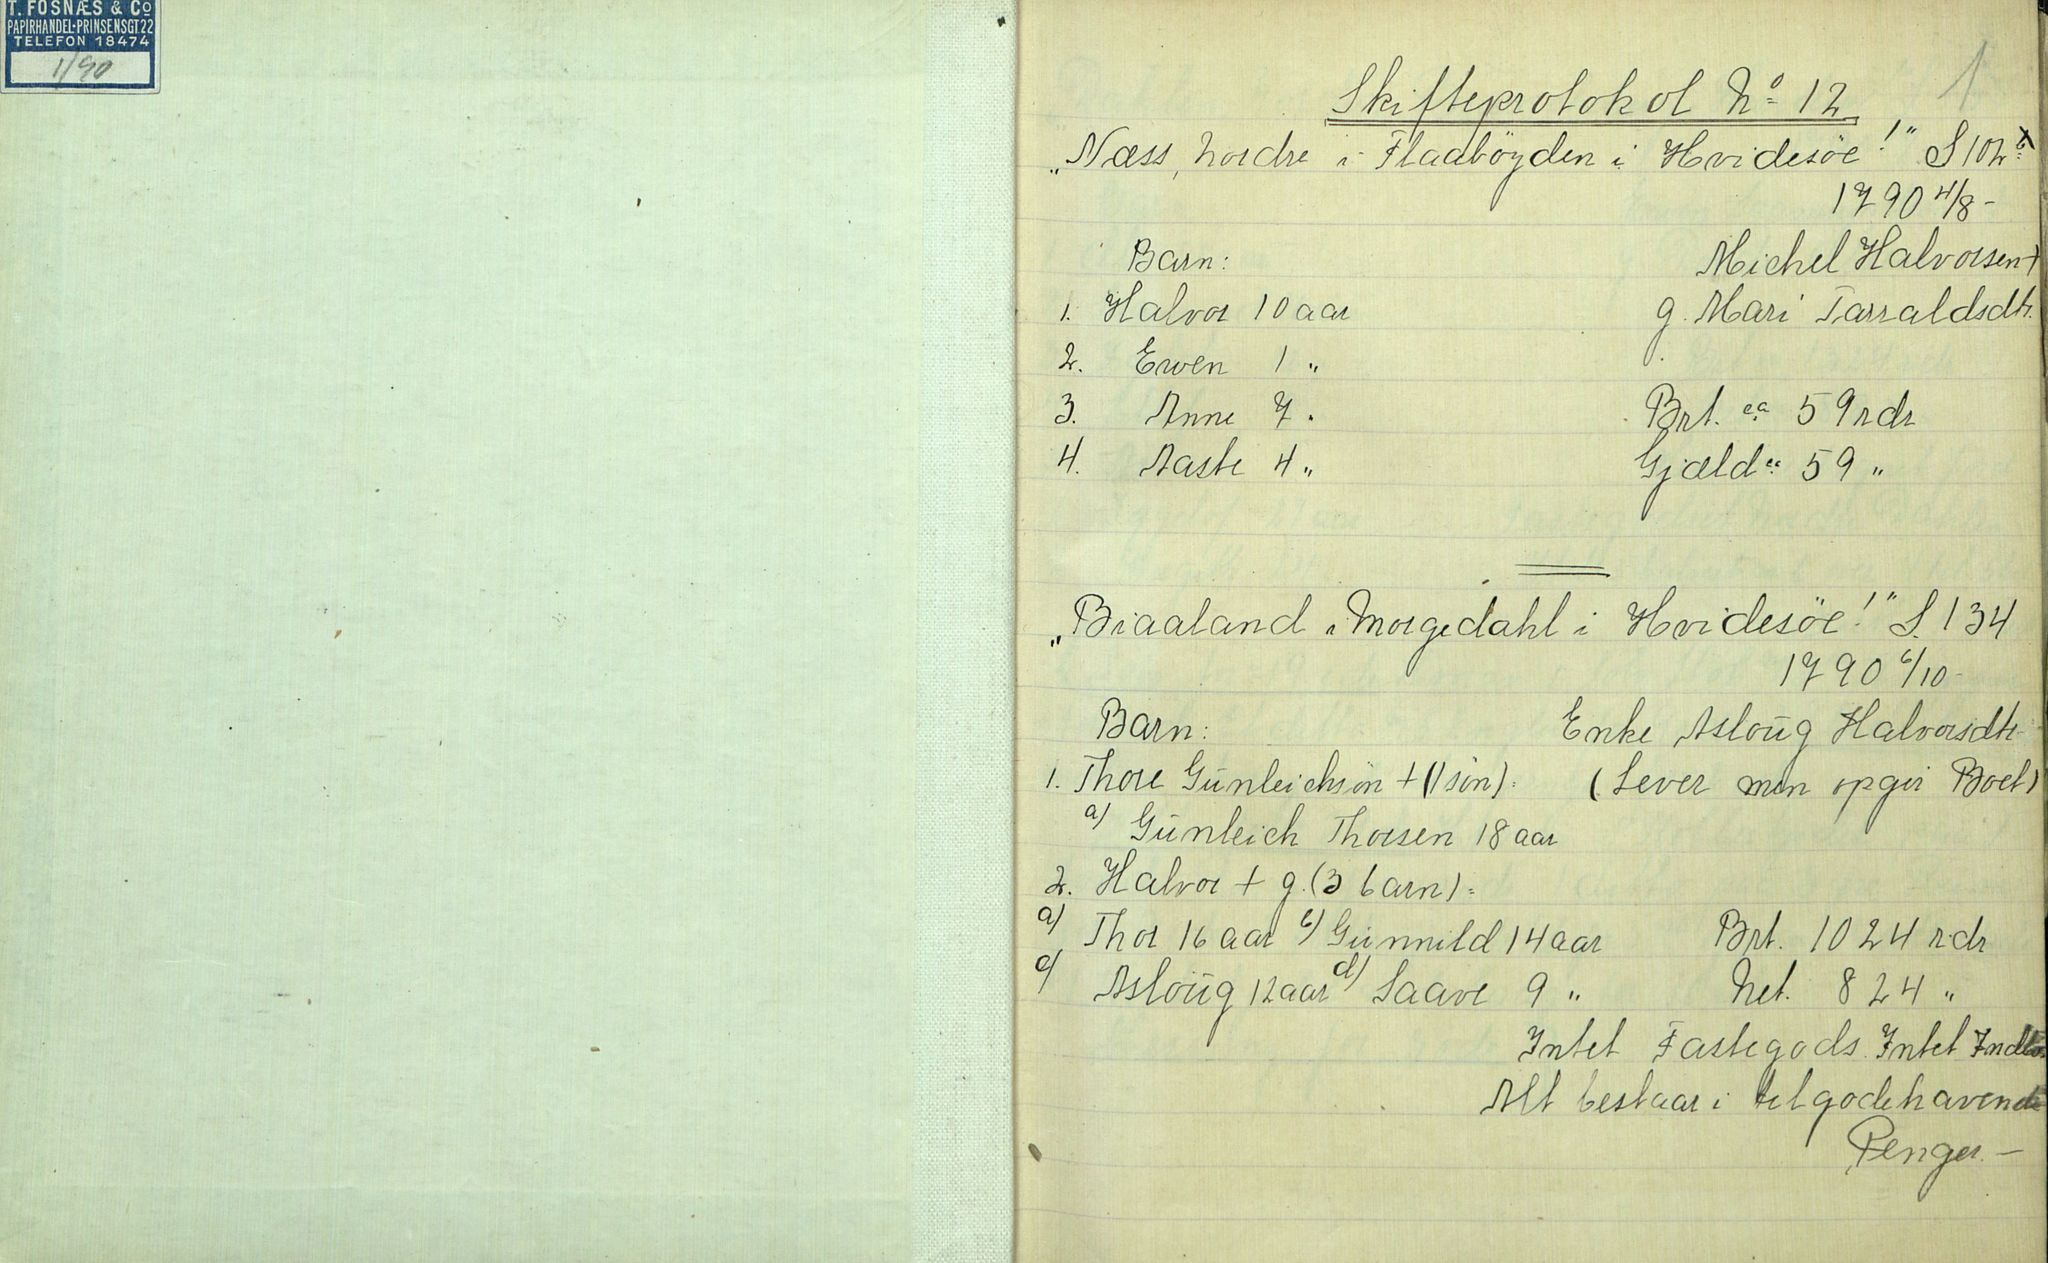 T. FOSNÆS & Co
PAPIRHANDEL·PRINSENSGT.22
TELEFON 18474
1/90
1
Skifteprotokol No 12
"Næss, nordre i Flaabøyden i Hvidesøe!" S 102 b
1790 4/8 -
Barn: Michel Halvorsen +
1. Halvor 10 aar g. Mari Tarraldsdtr.
2. Even 1 "
3. Anne 7 " Brt. ca 59 rdr
4. Aaste 4 " Gjæld ca 59 "
"Biaaland i Morgedahl i Hvidesøe!" S. 134
1790 6/10 -
Barn: Enke Asloug Halvorsdtr
1. Thore Gunleichsøn + (1 søn): (Lever men opgir Boet)
a) Gunleich Thorsen 18 aar
2. Halvor + g. (3 barn):
a) Thor 16 aar b) Gunnild 14 aar Brt. 1024 rdr
c) Asloug 12 aar d) Saave 9 " Net. 824 "
Intet Fastegods. Intet Indbo.
Alt bestaar i tilgodehavende
Penger. -